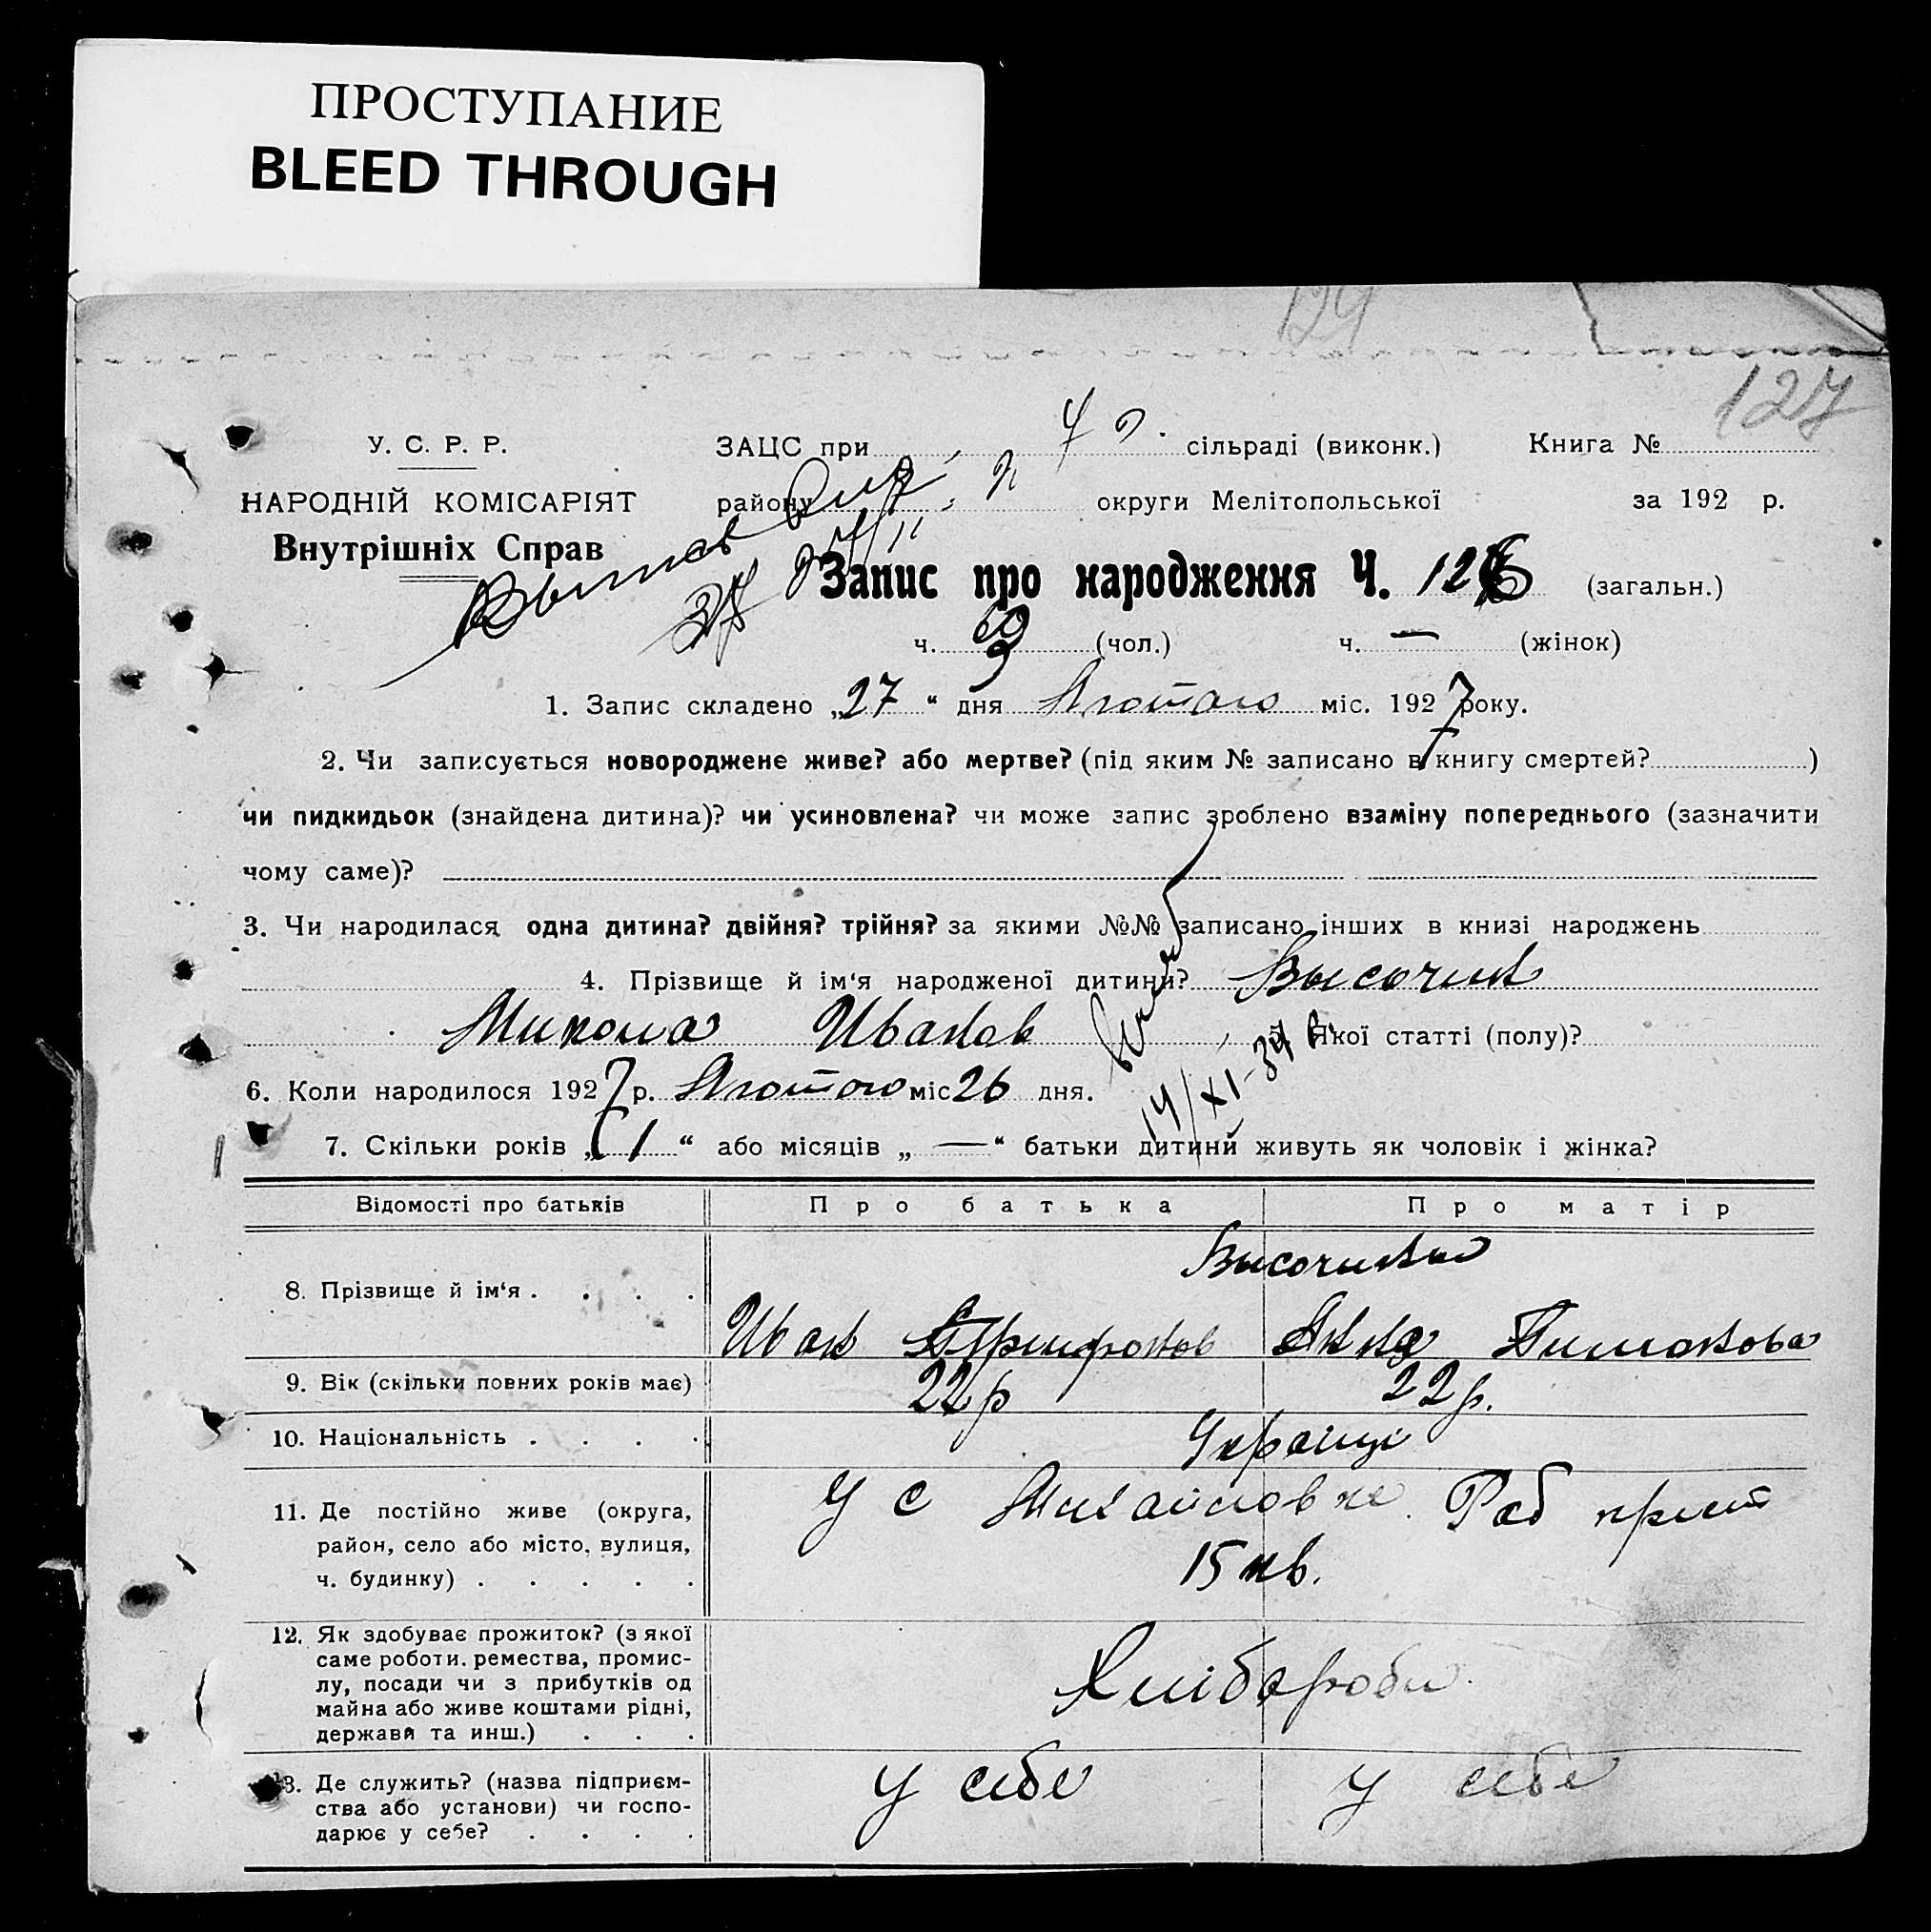 ПРОСТУПАНИЕ
BLEED THROUGH
124
127
У. С. Р. Р.
ЗАЦС при сільраді (виконк.) Книга №
НАРОДНІЙ КОМІСАРІЯТ
району округи Мелітопольської за 192 р.
Внутрішніх Справ
Запис про народження Ч. 126 (загальн.)
ч. (чол.) ч. — (жінок)
1. Запис складено „27“ дня Лютого міс. 1927 року.
2. Чи записується новороджене живе? або мертве? (під яким № записано в книгу смертей? )
чи пидкидьок (знайдена дитина)? чи усиновлена? чи може запис зроблено взаміну попереднього (зазначити
чому саме)?
3. Чи народилася одна дитина? двійня? трійня? за якими №№ записано інших в книзі народжень
4. Прізвище й ім‘я народженої дитини? Высочин
Микола Иванов 5. Якої статті (полу)?
14/XI-34 г
6. Коли народилося 1927 р. Лютого міс 26 дня.
7. Скільки років „1“ або місяців „—“ батьки дитини живуть як чоловік і жінка?
Відомості про батьків Про батька Про матір
Высочины
8. Прізвище й ім‘я . . . .
Иван Трифонов Анна Тимонова
9. Вік (скільки повних років має) 22 р 22 р.
10. Національність . . . . Українці
11. Де постійно живе (округа, район, село або місто, вулиця, ч. будинку) . . . . .
У с Михайловке Раб
15 кв.
12. Як здобуває прожиток? (з якої
саме роботи. ремества, промис-
лу, посади чи з прибутків од
майна або живе коштами рідні,
держави та инш.) . . .
Хлібороби
13. Де служить? (назва підприєм-
ства або установи) чи госпо-
дарює у себе? . . . .
У себе У себе